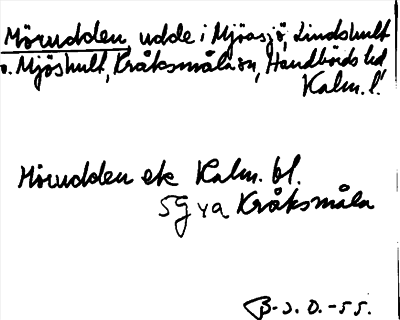 Mörudden, udde i Mjöasjö, Lindshult
o. Mjöshult, Kråksmåla sn, Handbörds hd
Kalm. l.
Mörudden ek Kalm. bl.
5G va Kråksmåla
B-s. O. -55.